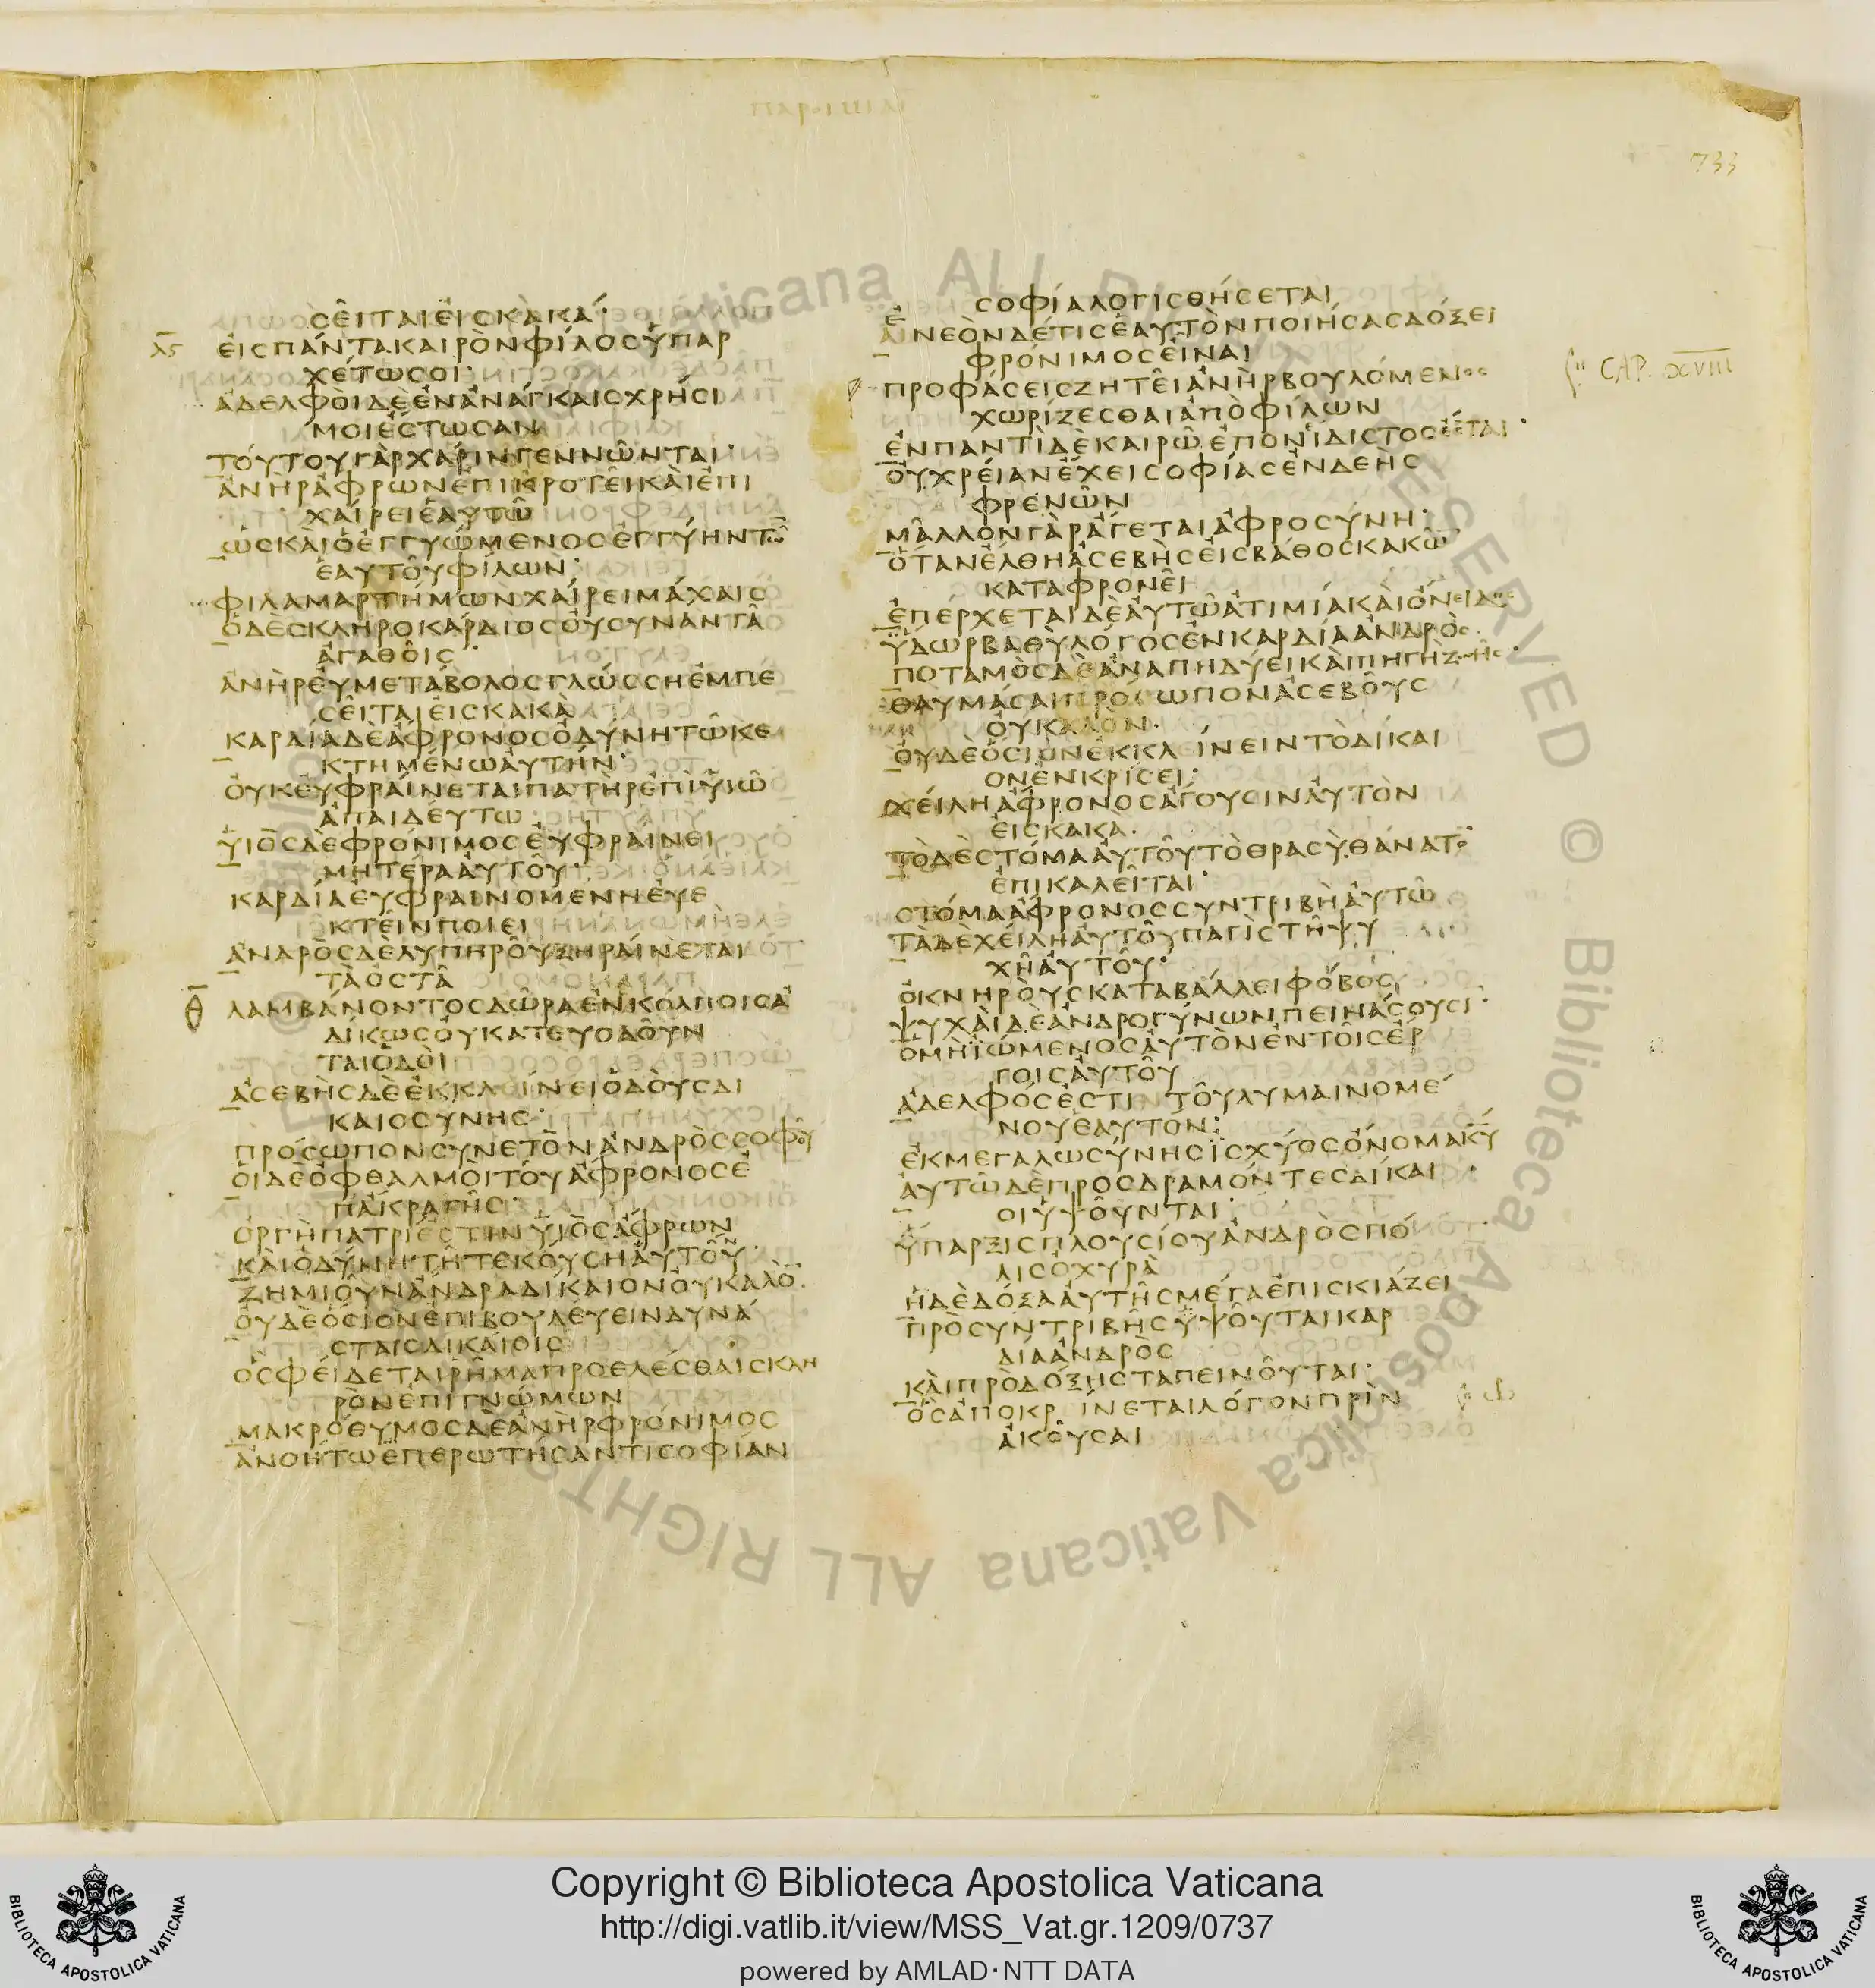 ΠΑΡΟΙΜΙΑΙ
733
ϹΕΙΤΑΙΕΙϹΚΑΚΑ·
ΛϚ ΕΙϹΠΑΝΤΑΚΑΙΡΟΝΦΙΛΟϹΫΠΑΡ
ΧΕΤΩϹΟΙ·
ΑΔΕΛΦΟΙΔΕΕΝΑΝΑΓΚΑΙϹΧΡΗϹΙ
ΜΟΙΕϹΤΩϹΑΝ
ΤΟΥΤΟΥΓΑΡΧΑΡΙΝΓΕΝΝΩΝΤΑΙ·
ΑΝΗΡΑΦΡΩΝΕΠΙΚΡΟΤΕΙΚΑΙΕΠΙ
ΧΑΙΡΕΙΕΑΥΤΩ
ΩϹΚΑΙΟΕΓΓΥΩΜΕΝΟϹΕΓΓΥΗΝΤΩ̅
ΕΑΥΤΟΥΦΙΛΩΝ·
ΦΙΛΑΜΑΡΤΗΜΩΝΧΑΙΡΕΙΜΑΧΑΙϹ
ΟΔΕϹΚΛΗΡΟΚΑΡΔΙΟϹΟΥϹΥΝΑΝΤΑ
ΑΓΑΘΟΙϹ·
ΑΝΗΡΕΥΜΕΤΑΒΟΛΟϹΓΛΩϹϹΗΕΜΠΕ
ϹΕΙΤΑΙΕΙϹΚΑΚΑ
ΚΑΡΔΙΑΔΕΑΦΡΟΝΟϹΟΔΥΝΗΤΩΚΕ
ΚΤΗΜΕΝΩΑΥΤΗΝ·
ΟΥΚΕΥΦΡΑΙΝΕΤΑΙΠΑΤΗΡΕΠΙΫΙΩ
ΑΠΑΙΔΕΥΤΩ
ΫΙΟϹΔΕΦΡΟΝΙΜΟϹΕΥΦΡΑΙΝΕΙ
ΜΗΤΕΡΑΑΥΤΟΥ·
ΚΑΡΔΙΑΕΥΦΡΑΙΝΟΜΕΝΗΕΥΕ
ΚΤΕΙΝΠΟΙΕΙ
ΑΝΔΡΟϹΔΕΛΥΠΗΡΟΥΞΗΡΑΙΝΕΤΑΙ
ΤΑΟϹΤΑ
Θ ΛΑΜΒΑΝΟΝΤΟϹΔΩΡΑΕΝΚΟΛΠΟΙϹΑ
ΔΙΚΩϹΟΥΚΑΤΕΥΟΔΟΥΝ
ΤΑΙΟΔΟΙ
ΑϹΕΒΗϹΔΕΕΚΚΛΙΝΕΙΟΔΟΥϹΔΙ
ΚΑΙΟϹΥΝΗϹ·
ΠΡΟϹΩΠΟΝϹΥΝΕΤΟΝΑΝΔΡΟϹϹΟΦΟΥ
ΟΙΔΕΟΦΘΑΛΜΟΙΤΟΥΑΦΡΟΝΟϹΕ
ΠΑΚΡΑΓΗϹ·
ΟΡΓΗΠΑΤΡΙΕϹΤΙΝΫΙΟϹΑΦΡΩΝ
ΚΑΙΟΔΥΝΗΤΗΤΕΚΟΥϹΗΑΥΤΟΥ·
ΖΗΜΙΟΥΝΑΝΔΡΑΔΙΚΑΙΟΝΟΥΚΑΛΟ̅
ΟΥΔΕΟϹΙΟΝΕΠΙΒΟΥΛΕΥΕΙΝΔΥΝΑ
ϹΤΑΙϹΔΙΚΑΙΟΙϹ
ΟϹΦΕΙΔΕΤΑΙΡΗΜΑΠΡΟΕϹΘΑΙϹΚΛΗ
ΡΟΝΕΠΙΓΝΩΜΩΝ
ΜΑΚΡΟΘΥΜΟϹΔΕΑΝΗΡΦΡΟΝΙΜΟϹ
ΑΝΟΗΤΩΕΠΕΡΩΤΗϹΑΝΤΙϹΟΦΙΑΝ
ϹΟΦΙΑΛΟΓΙϹΘΗϹΕΤΑΙ
ΕΝΕΟΝΔΕΤΙϹΕΑΥΤΟΝΠΟΙΗϹΑϹΔΟΞΕΙ
ΦΡΟΝΙΜΟϹΕΙΝΑΙ
ΠΡΟΦΑϹΕΙϹΖΗΤΕΙΑΝΗΡΒΟΥΛΟΜΕΝΟϹ CAP. XVIII
ΧΩΡΙΖΕϹΘΑΙΑΠΟΦΙΛΩΝ
ΕΝΠΑΝΤΙΔΕΚΑΙΡΩΕΠΟΝΙΔΙϹΤΟϹΕϹΤΑΙ·
ΟΥΧΡΕΙΑΝΕΧΕΙϹΟΦΙΑϹΕΝΔΕΗϹ
ΦΡΕΝΩΝ
ΜΑΛΛΟΝΓΑΡΑΓΕΤΑΙΑΦΡΟϹΥΝΗ·
ΟΤΑΝΕΛΘΗΑϹΕΒΗϹΕΙϹΒΑΘΟϹΚΑΚΩ̅
ΚΑΤΑΦΡΟΝΕΙ
ΕΠΕΡΧΕΤΑΙΔΕΑΥΤΩΑΤΙΜΙΑΚΑΙΟΝΕΙΔΟϹ
ΫΔΩΡΒΑΘΥΛΟΓΟϹΕΝΚΑΡΔΙΑΑΝΔΡΟϹ
ΠΟΤΑΜΟϹΔΕΑΝΑΠΗΔΥΕΙΚΑΙΠΗΓΗΖΩΗϹ·
ΘΑΥΜΑϹΑΙΠΡΟϹΩΠΟΝΑϹΕΒΟΥϹ
ΟΥΚΑΛΟΝ·
ΟΥΔΕΟϹΙΟΝΕΚΚΛΙΝΕΙΝΤΟΔΙΚΑΙ
ΟΝΕΝΚΡΙϹΕΙ·
ΧΕΙΛΗΑΦΡΟΝΟϹΑΓΟΥϹΙΝΑΥΤΟΝ
ΕΙϹΚΑΚΑ·
ΤΟΔΕϹΤΟΜΑΑΥΤΟΥΤΟΘΡΑϹΥΘΑΝΑΤΟ̅
ΕΠΙΚΑΛΕΙΤΑΙ·
ϹΤΟΜΑΑΦΡΟΝΟϹϹΥΝΤΡΙΒΗΑΥΤΩ
ΤΑΔΕΧΕΙΛΗΑΥΤΟΥΠΑΓΙϹΤΗΨΥ
ΧΗΑΥΤΟΥ·
ΟΚΝΗΡΟΥϹΚΑΤΑΒΑΛΛΕΙΦΟΒΟϹ
ΨΥΧΑΙΔΕΑΝΔΡΟΓΥΝΩΝΠΕΙΝΑϹΟΥϹΙ
ΟΜΗΪΩΜΕΝΟϹΑΥΤΟΝΕΝΤΟΙϹΕΡ
ΓΟΙϹΑΥΤΟΥ
ΑΔΕΛΦΟϹΕϹΤΙΤΟΥΛΥΜΑΙΝΟΜΕ
ΝΟΥΕΑΥΤΟΝ·
ΕΚΜΕΓΑΛΩϹΥΝΗϹΪϹΧΥΟϹΟΝΟΜΑΚ̅Υ̅
ΑΥΤΩΔΕΠΡΟϹΔΡΑΜΟΝΤΕϹΔΙΚΑΙ
ΟΙΫΨΟΥΝΤΑΙ
ΫΠΑΡΞΙϹΠΛΟΥϹΙΟΥΑΝΔΡΟϹΠΟ
ΛΙϹΟΧΥΡΑ
ΗΔΕΔΟΞΑΑΥΤΗϹΜΕΓΑΕΠΙϹΚΙΑΖΕΙ
ΠΡΟϹΥΝΤΡΙΒΗϹΫΨΟΥΤΑΙΚΑΡ
ΔΙΑΑΝΔΡΟϹ
ΚΑΙΠΡΟΔΟΞΗϹΤΑΠΕΙΝΟΥΤΑΙ·
ΟϹΑΠΟΚΡΙΝΕΤΑΙΛΟΓΟΝΠΡΙΝ
ΑΚΟΥϹΑΙ
Copyright © Biblioteca Apostolica Vaticana
http://digi.vatlib.it/view/MSS_Vat.gr.1209/0737
powered by AMLAD·NTT DATA
BIBLIOTECA APOSTOLICA VATICANA
BIBLIOTECA APOSTOLICA VATICANA